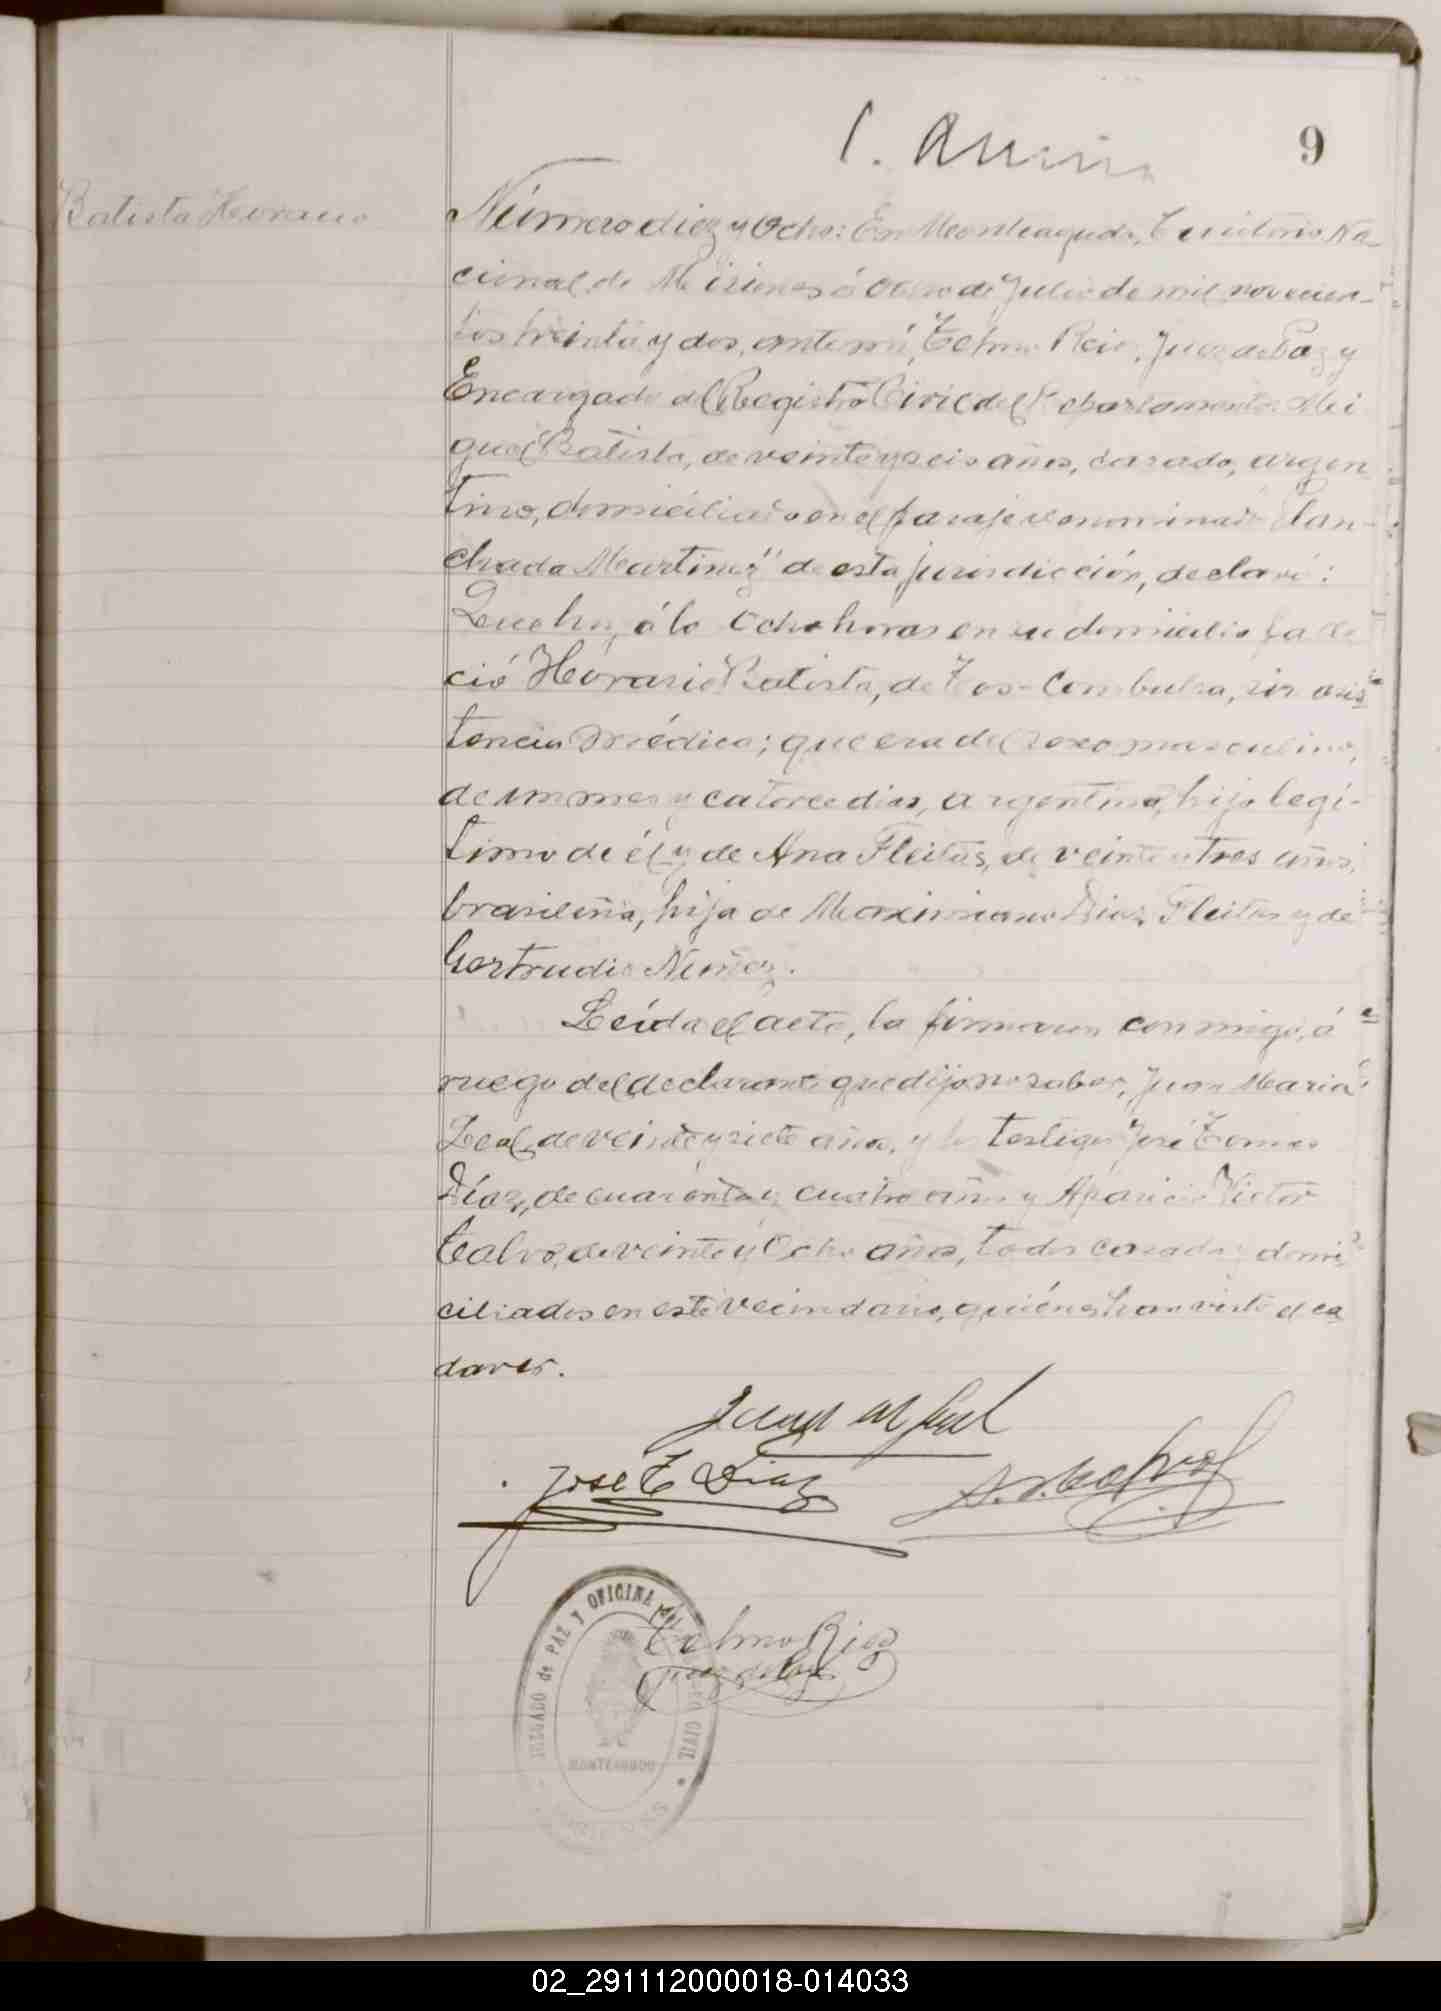 9
Batista Horacio
Número diez y Ocho: En Monteagudo, Territorio Na-
cional de Misiones á Ocho de Julio de mil novecien-
tos treinta y dos, ante mí, Telmo Rios, Juez de Paz y
Encargado del Registro Civil del Departamento Mi
guel Batista, de veinte y seis años, casado, argen
tino, domiciliado en el paraje denominado Plan-
chada Martinez" de esta jurisdicción, declaró:
Que hoy, á la Ocho horas en su domicilio falle
ció Horasio Batista, de Tos-Combulsa, sin asis
tencia médica; que era del sexo masculino,
de un mes y catorce dias, argentino, hijo legi-
timo de él y de Ana Fleitas, de veinte y tres años,
brasileña, hija de Maximiano Diaz Fleitas y de
Gertrudis Nuñez.
Leída el acta, la firmaron conmigo, á
ruego del declarante que dijo no saber, Juan Maria
Leal, de veinte y siete años, y los testigos José Tomas
Díaz, de cuarenta y cuatro años y Aparicio Victor
Calvo, de veinte y Ocho años, todos casados domi
ciliados en este vecindario, quiénes han visto el ca
daver.
Juan M Leal
José T Diaz
A. V. Calvo
Telmo Rios
Juez de Paz
JUZGADO de PAZ Y OFICINA del
CIVIL
MONTEAGUDO
MISIONES
02_291112000018-014033